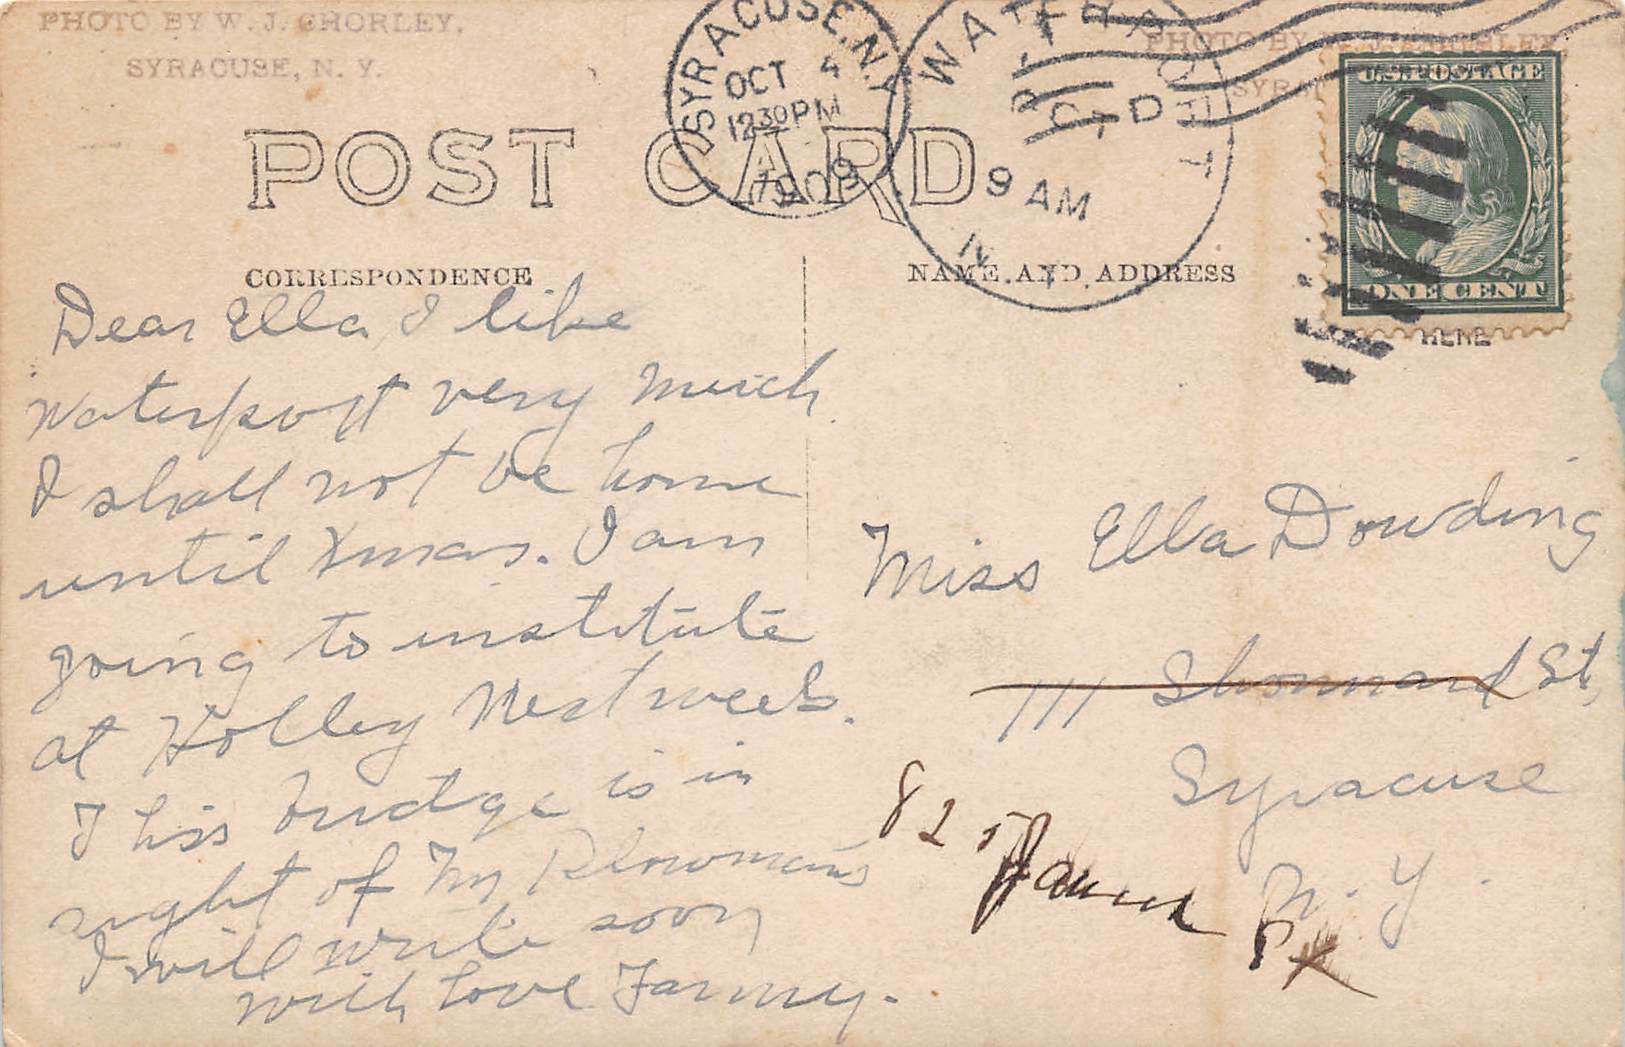 PHOTO BY W. J. CHORLEY.
SYRACUSE, N. Y.
PHOTO BY
SYRA
SYRACUSE, N.Y.
OCT 4
12 30 PM
1909
WATERPORT
OCT
9 AM
N. Y.
U.S. POSTAGE
ONE CENT
HERE
POST CARD
CORRESPONDENCE
NAME AND ADDRESS
Dear Ella, I like
Waterport very much
I shall not be home
until Xmas. I am
going to institute
at Holley next week.
This bridge is in
sight of Mr Plowman's
I will write soon
with love Fanny.
Miss Ella Dowding
111 Shonnard St,
Syracuse
N. Y.